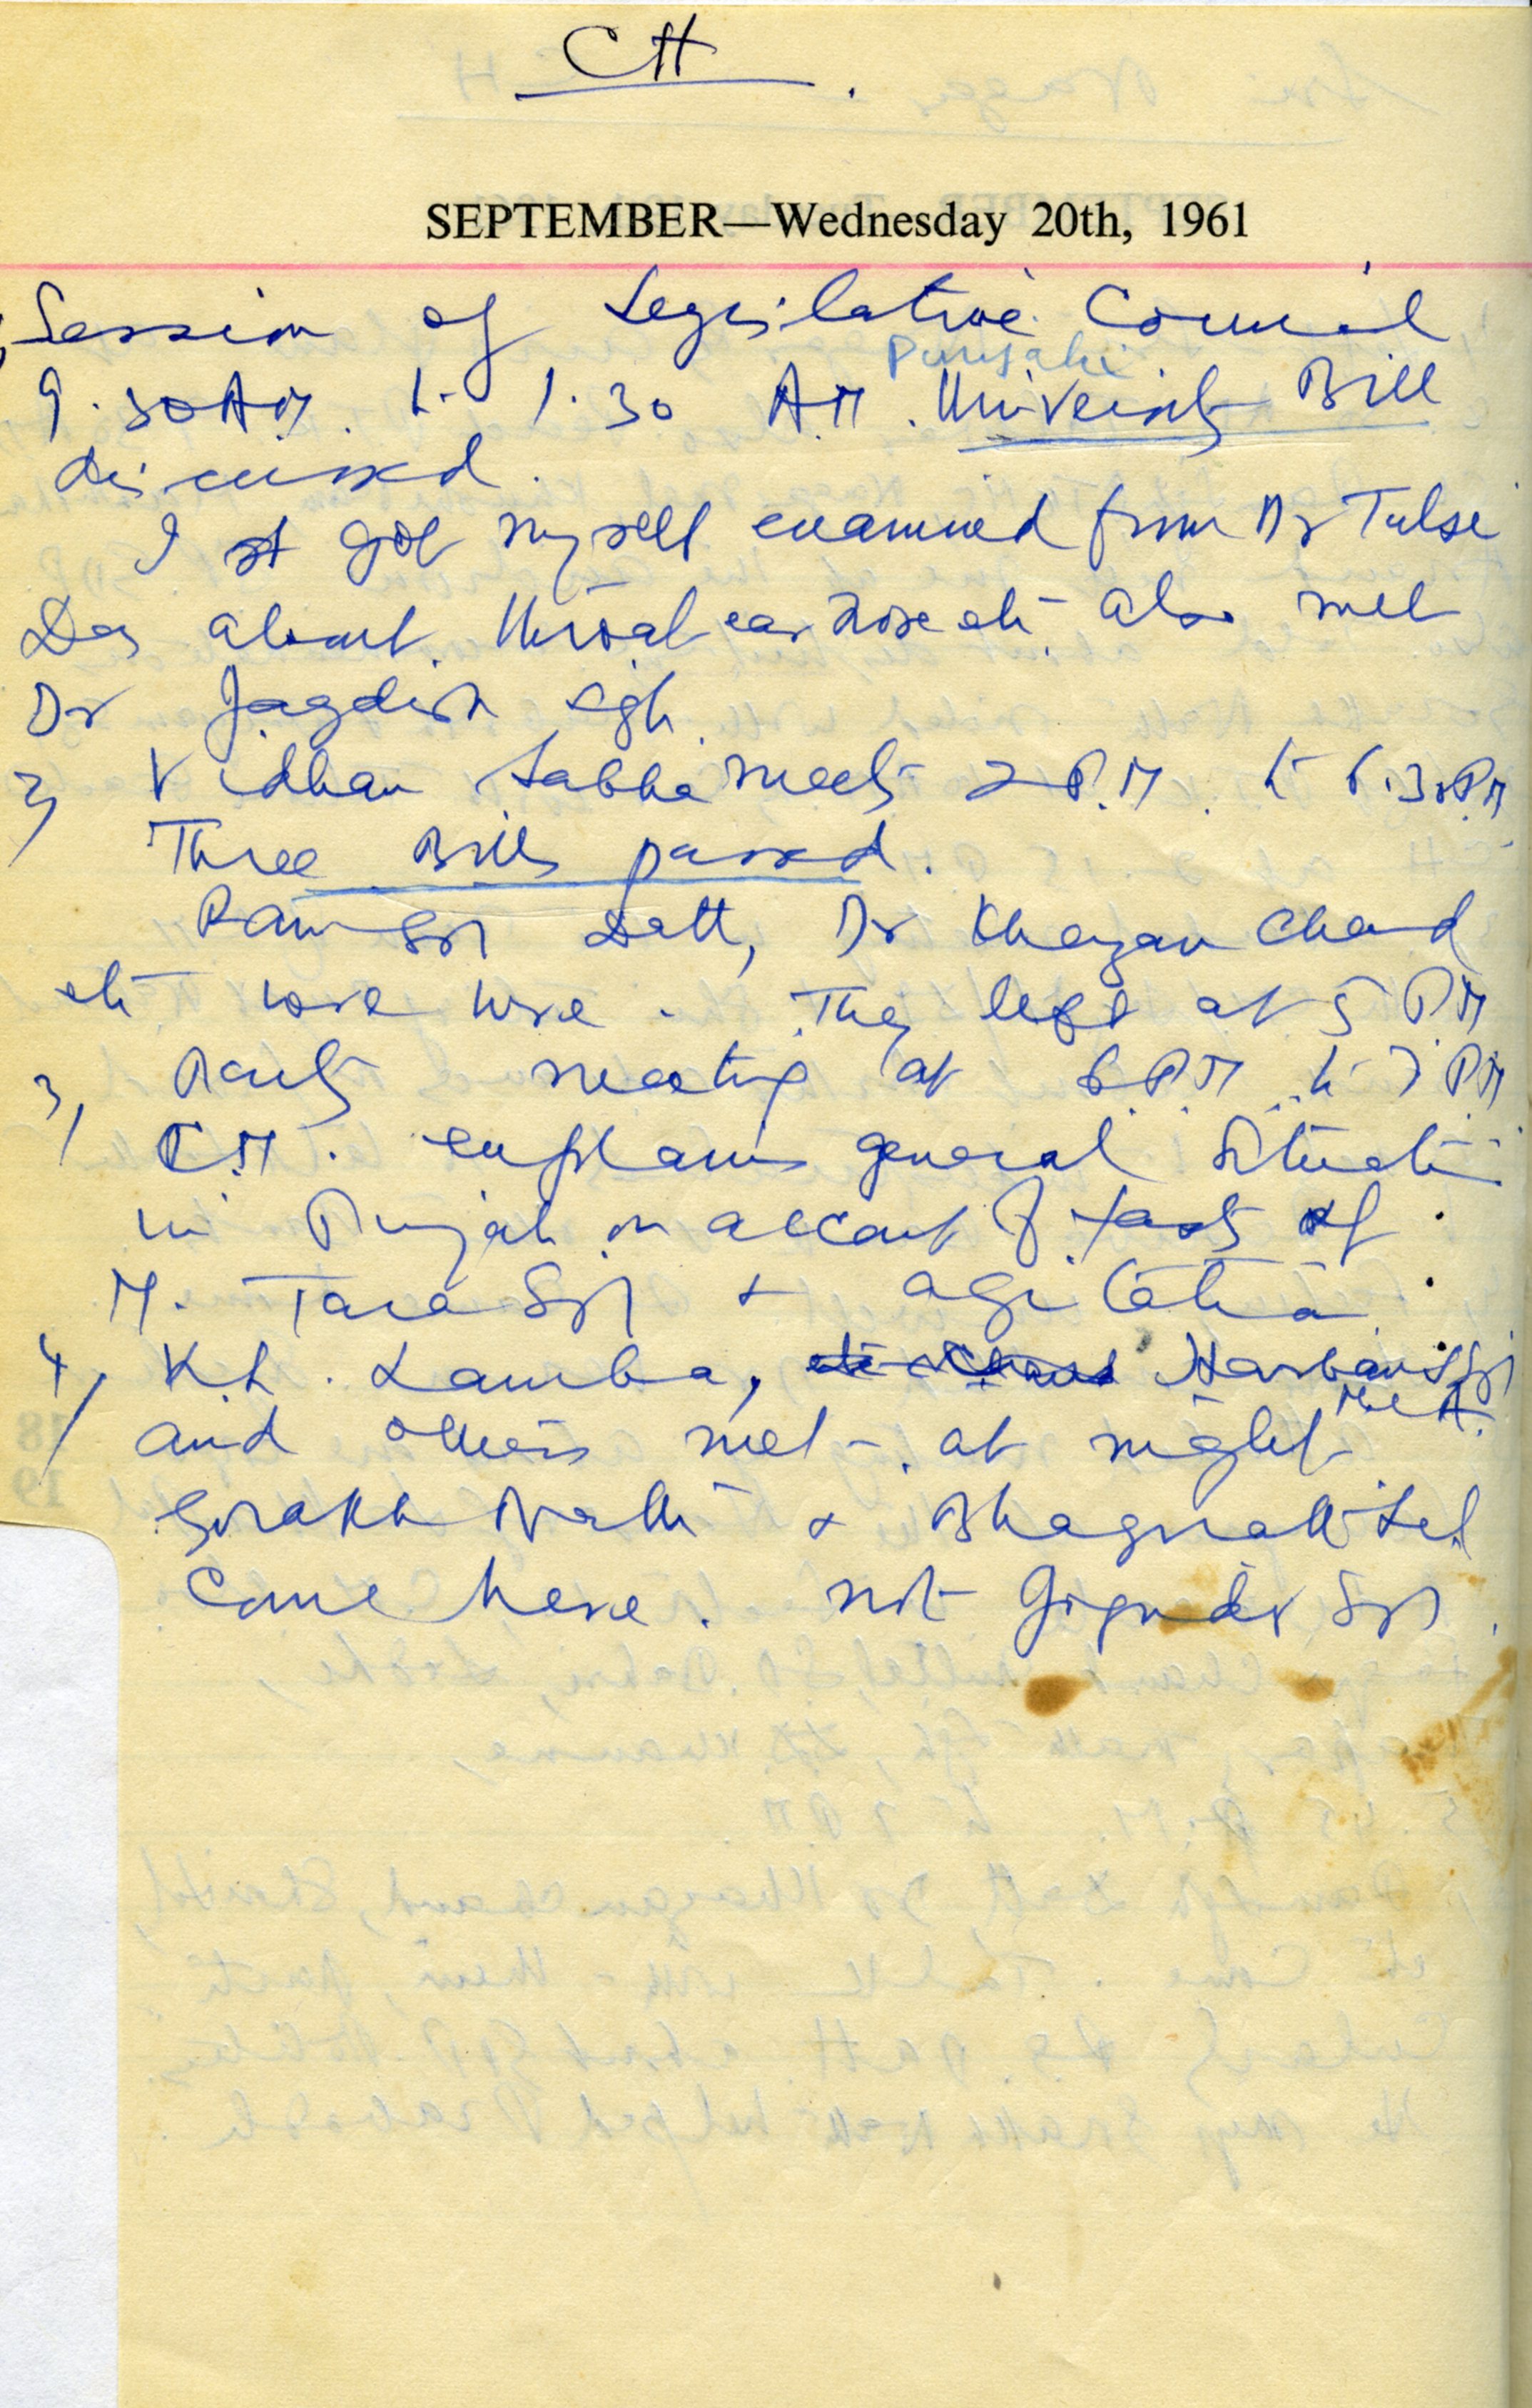 CH.
SEPTEMBER—Wednesday 20th, 1961
Session of Legislative Council
Punjabi
9.30 AM. to 1.30 A.M. University Bill
discussed.
I got myself examined from Dr Tulsi
Das about throat ear nose etc also met
Dr Jagdish Sgh
2, Vidhan Sabha meets 2 P.M. to 6.30 PM
Three Bills passed.
Ram Sgh Datt, Dr Khazan Chand
etc were here. They left at 5 PM
3, Party meeting at 6 P.M to 7 PM
C.M. explains general situation
in Punjab on account of fast of
M. Tara Sgh + agitation.
4, K.L. Lamba, Harbans Sgh
MLA.
and others met. at night
Gorakh Nath + Bhagnath Lal
came here. not Joginder Sgh.